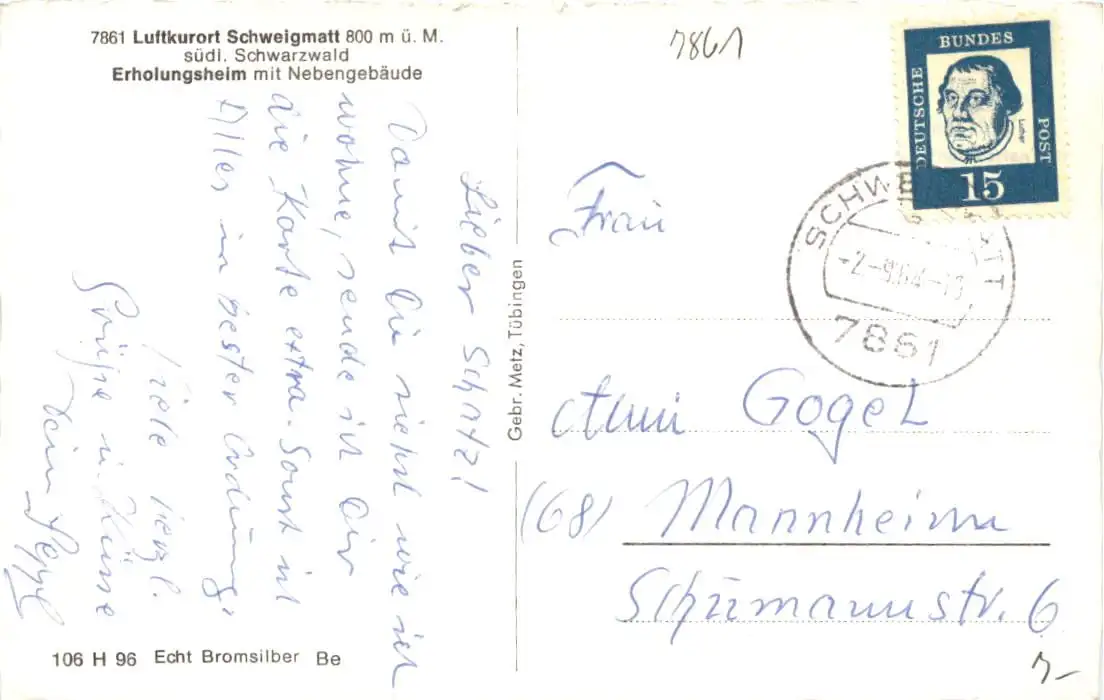 7861 Luftkurort Schweigmatt 800 m ü. M.
südl. Schwarzwald
Erholungsheim mit Nebengebäude
Lieber Schatz!
Damit Du siehst wie ich
wohne, sende ich Dir
die Karte extra. Sonst ist
Alles in bester Ordnung.
Viele herzl.
Grüße u. Küsse
Dein Seppl
106 H 96 Echt Bromsilber Be
Gebr. Metz, Tübingen
7861
DEUTSCHE
BUNDES
POST
Luther
15
SCHWEIGMATT
-2.-9.64-
7861
Frau
Anni Gogel
(68) Mannheim
Schumannstr. 6